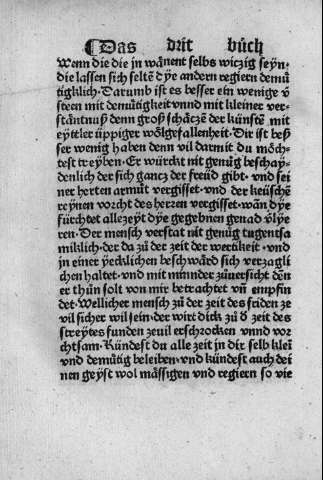 Das drit bůch
Wenn die die jn wānent selbs witzig seyn·
die lassen sich seltē dye andern regiern demů
tigklich· Darumb ist es besser ein wenige v̈
steen mit demůtigkeit vnnd mit kleiner ver-
stāntnuß denn groß schāczē der künstē mit
eytteler üppiger wōlgefallenheit· Dir ist bes-
ser wenig haben denn vil darmit du mōch-
test treyben· Er würckt nit genůg beschay-
denlich der sich gancz der freüd gibt· vnd sei
ner herten armůt vergisset· vnd der keüschē
reynen vorcht des herren vergisset· wān dye
fürchtet allezeyt dye gegebnen genad v̈lye
ren· Der mensch verstat nit genůg tugentsa
miklich· der da zů der zeit der wertikeit· vnd
jn einer yecklichen beschwārd sich verzagli
chen haltet· vnd mit minnder zůuersicht dēn
er thůn solt von mir betrachtet vn̄ empfin
det· Wellicher mensch zů der zeit des friden ze
vil sicher wil sein· der wirt dick zů ď zeit des
streytes funden zeuil erschrocken vnnd vor
chtsam· Kündest du alle zeit in dir selb kleī
vnd demůtig beleiben· vnd kündest auch dei
nen geyst wol māssigen vnd regiern so vie